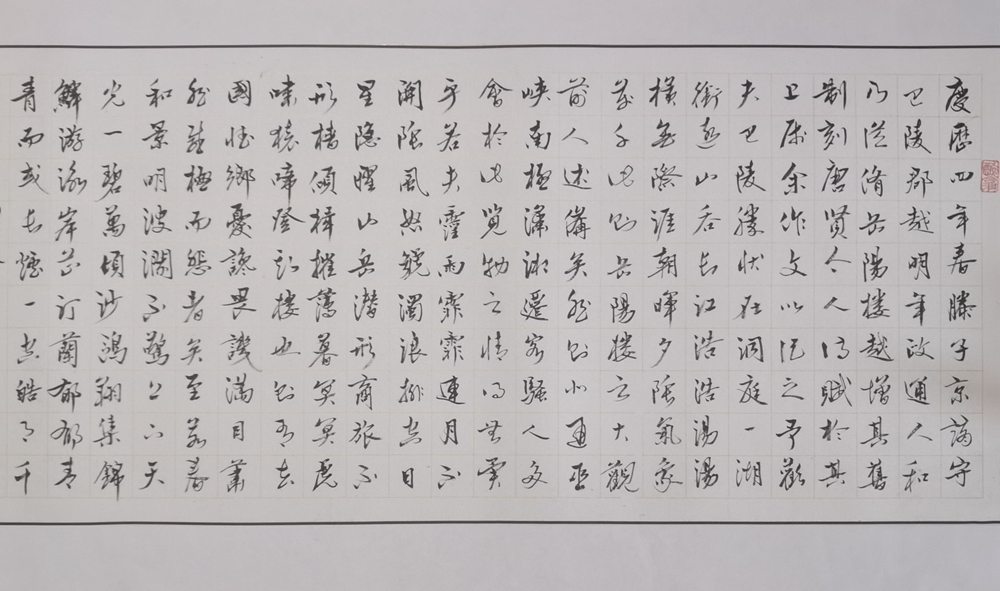 慶歷四年春滕子京謫守
巴陵郡越明年政通人和
乃從脩岳陽楼越增其舊
制刻唐賢今人詩賦於其
上屬余作文以記之予觀
夫巴陵勝狀在洞庭一湖
銜遠山吞長江浩浩湯湯
橫無際涯朝暉夕陰氣象
萬千此則岳陽楼之大觀
前人述備矣然則北通巫
峽南極瀟湘遷客騷人多
會於此覽物之情得無異
乎若夫霪雨霏霏連月不
開陰風怒號濁浪排空日
星隱曜山岳潛形商旅不
形檣傾楫摧薄暮冥冥虎
嘯猿啼登斯楼也則有去
國懷鄉憂讒畏譏滿目蕭
然感極而悲者矣至若春
和景明波瀾不驚上下天
光一碧萬頃沙鷗翔集錦
鱗游泳岸芷汀蘭郁郁青
青而或長煙一空皓月千